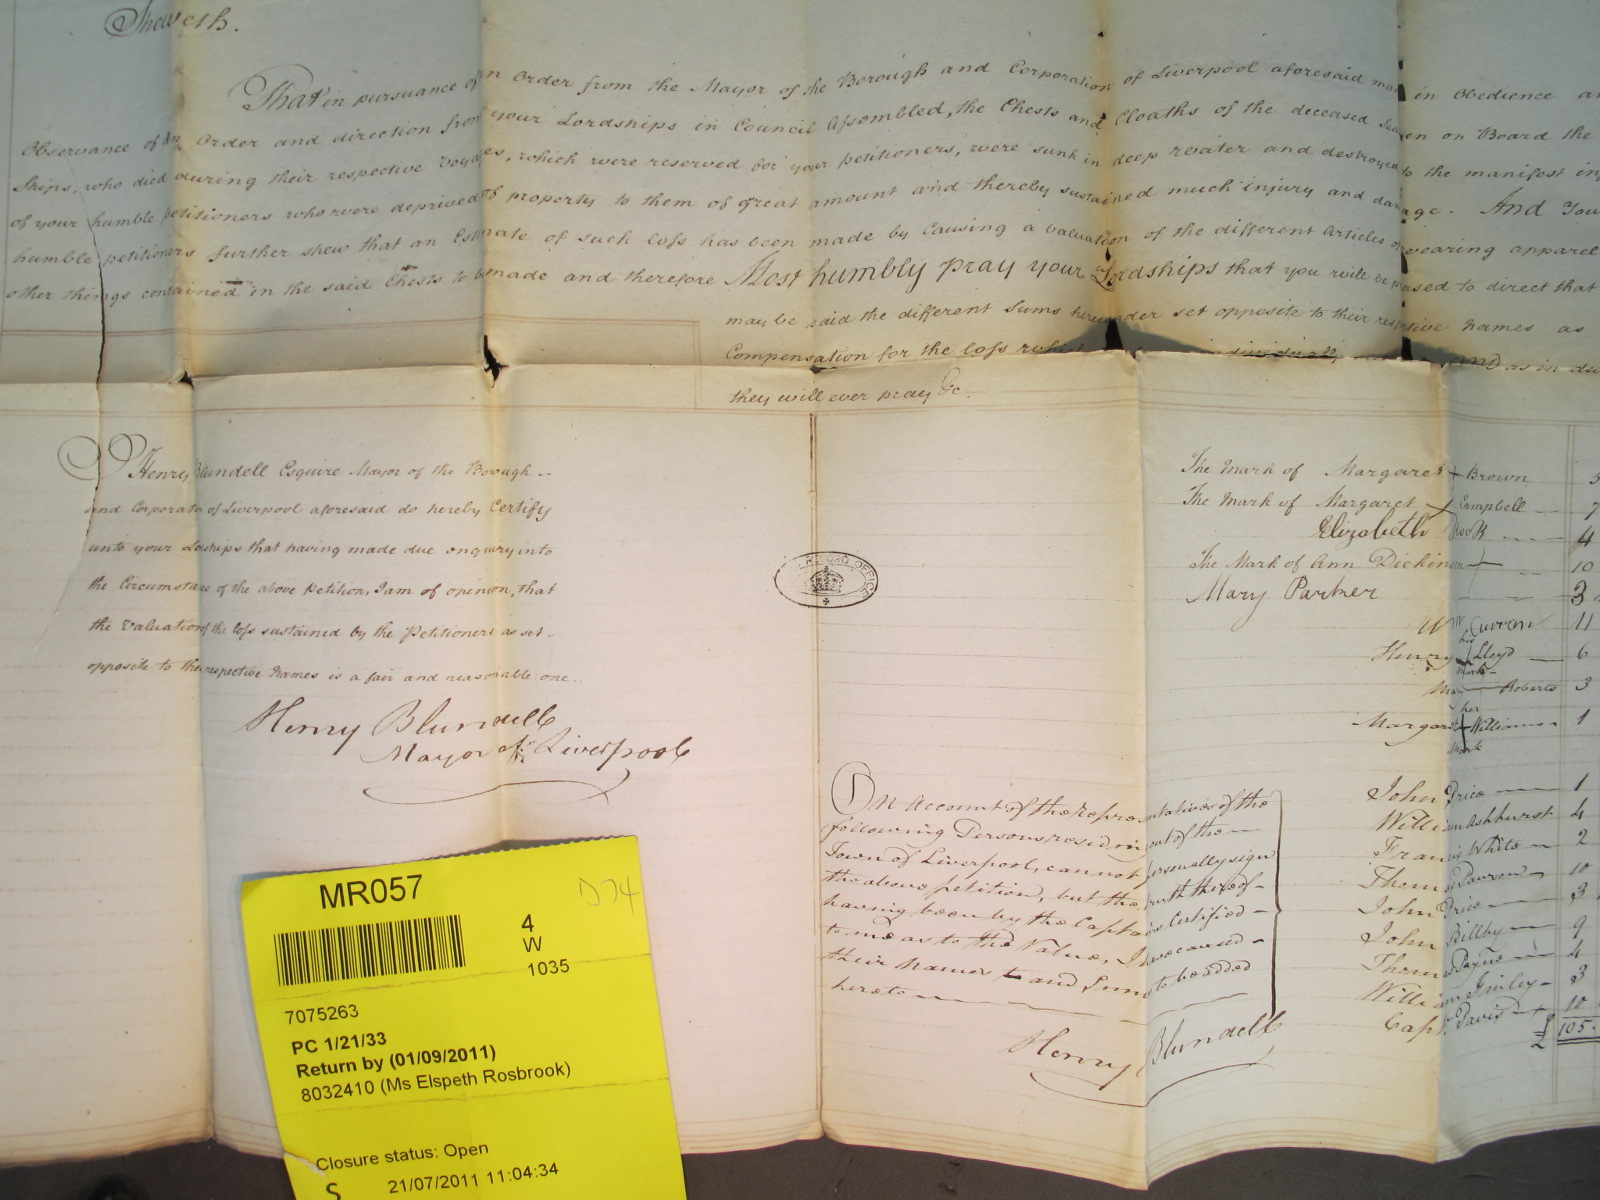 Sheweth.
That in pursuance of an Order from the Mayor of the Borough and Corporation of Liverpool aforesaid made in Obedience
Observance of an Order and direction from your Lordships in Council Assembled, the Chests and Cloaths of the deceased Seamen on Board the
Ships, who died during their respective Voyages, which were reserved for your petitioners, were sunk in deep water and destroyed to the manifest
of your humble petitioners who were deprived of property to them of great amount and thereby sustained much injury and damage. And You
humble petitioners further shew that an Estimate of such loss has been made by Causing a valuation of the different Articles of wearing apparel
other things contained in the said Chests to be made and therefore Most humbly pray your Lordships that you will be pleased to direct that
may be paid the different Sums hereunder set opposite to their respective Names as
Compensation for the loss which individually and as in du
they will ever pray &c.
I Henry Blundell Esquire Mayor of the Borough
and Corporation of Liverpool aforesaid do hereby Certify
unto your Lordships that having made due enquiry into
the Circumstances of the above Petition, I am of opinion, that
the Valuation of the loss sustained by the Petitioners as set
opposite to their respective Names is a fair and reasonable one.
Henry Blundell
Mayor of Liverpool
The Mark of Margaret + Brown 5
The Mark of Margaret Campbell 7
Elizabeth Rook 4
The Mark of Ann Dickinson + 10
Mary Partner 3
Wm Curren 11
his
Henry Lloyd 6
Mark
Roberts 3
her
Margaret + Williamson 1
Mark
On Account of the representatives of the
following Persons residing out of the
Town of Liverpool, cannot personally sign
the above petition, but the truth thereof
having been by the Captains Certified
to me as to the Value, I have caused
their Names and Sums to be added
hereto
John Price 1
William Ashhurst 4
Francis White 2
Thomas Pawson 10
John Price 3
John Billby 9
Thomas Payne 4
William Finley 3
Capt. Davis 10
£ 105
Henry Blundell
MR057
D74
4
W
1035
7075263
PC 1/21/33
Return by (01/09/2011)
8032410 (Ms Elspeth Rosbrook)
Closure status: Open
S 21/07/2011 11:04:34